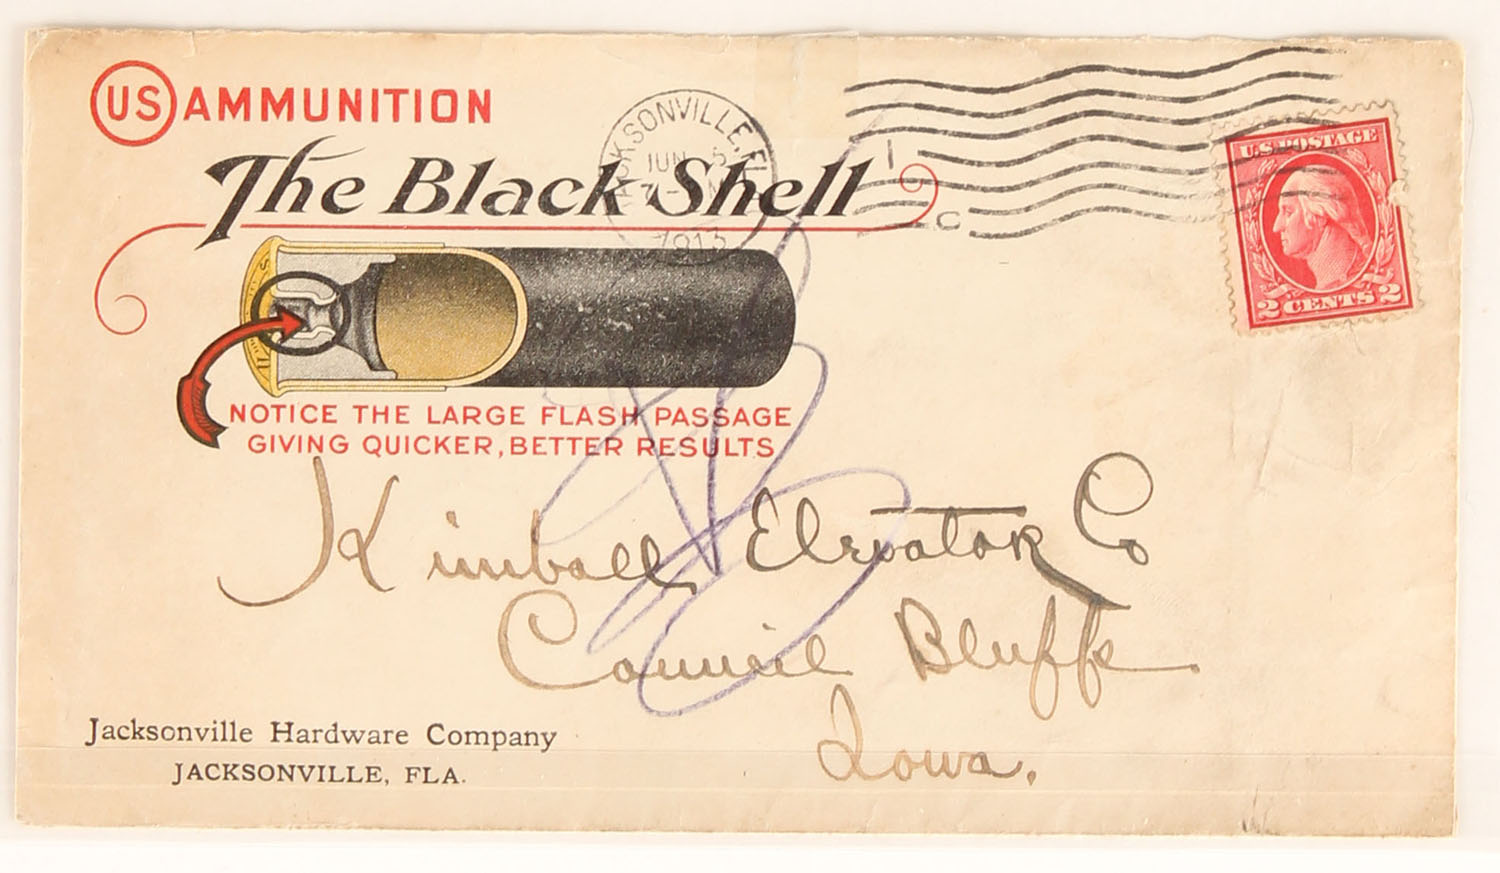 US AMMUNITION
The Black Shell
JACKSONVILLE, FL
JUN 5
1913
1
C
U.S. POSTAGE
2 CENTS 2
NOTICE THE LARGE FLASH PASSAGE
GIVING QUICKER, BETTER RESULTS
Kimball Elevator Co
Council Bluffs
Iowa.
Jacksonville Hardware Company
JACKSONVILLE, FLA.